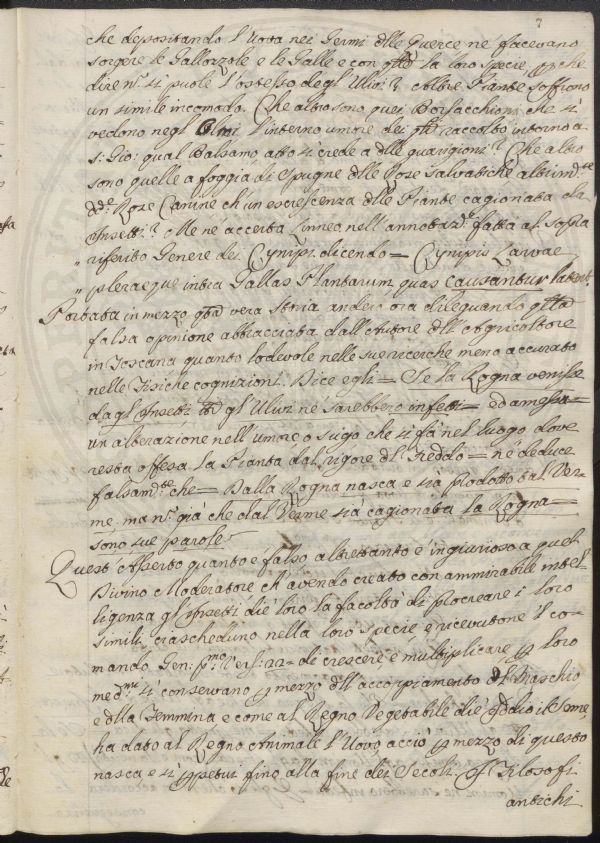 7
che depositando l'Uova nei Germi dlle Querce né facevano
sorgere le Gallozzole e le Galle e con qtto la loro specie, che
dire nn. si puole l'ostesso degl'Ulivi? coll'altre Piante soffrono
un simile incomodo. Che altro sono quei Borsacchioni che si
vedono negl'Olmi l'interno umore dei qli raccolto intorno a
S: Gio: qual Balsamo atto si crede a dlle guarigioni? Che altro
sono quelle a foggia di spugne dlle Roze salvatiche altrim.te
dde Roze Canine ch'un escrescenza dlle Piante cagionata da
Insetti? Me né accerta Linneo nell'annotaz.e fatta al sopra
„ riferito Genere dei Cynips. dicendo = Cynipis Larvae
„ pleraeque intra Gallas Plantarum, quas causantur latent.
Portata in mezzo qta vera storia anderò ora dileguando qlla
falsa opinione abbracciata dall'Autore dll'Agricoltore
in Toscana quanto lodevole nelle sue ricerche meno accurato
nelle Fisiche cognizioni. Dice egli = Se la Rogna venisse
dagl'Insetti tti gl'Ulivi né sarebbero infetti = ed ammessa =
un alterazione nell'umore o sugo che si fà nel luogo dove
resta offesa la Pianta dal rigore dl Freddo = né deduce
falsam.te che = Dalla Rogna nasca e sia prodotto tal Ver-
me, ma nn. già che dal Verme sia cagionata la Rogna =
sono sue parole.
Quest'Asserto quanto e falso altrettanto é ingiurioso a quel
Divino Moderatore ch'avendo creato con ammirabile intel-
ligenza gl'Insetti diè loro la facoltà di procreare i loro
simili ciascheduno nella loro specie e ricevutone il co-
mando Gen: p.mo Vers: 22 = di crescere e multiplicare loro
med.mi si conservano p mezzo dll'accoppiamento dl Maschio
e dlla Femmina e come al Regno Vegetabile diè Iddio il seme,
ha dato al Regno Animale l'Uovo acciò p mezzo di questo
nasca e si ppetui fino alla fine dei Secoli. I Filosofi
antichi